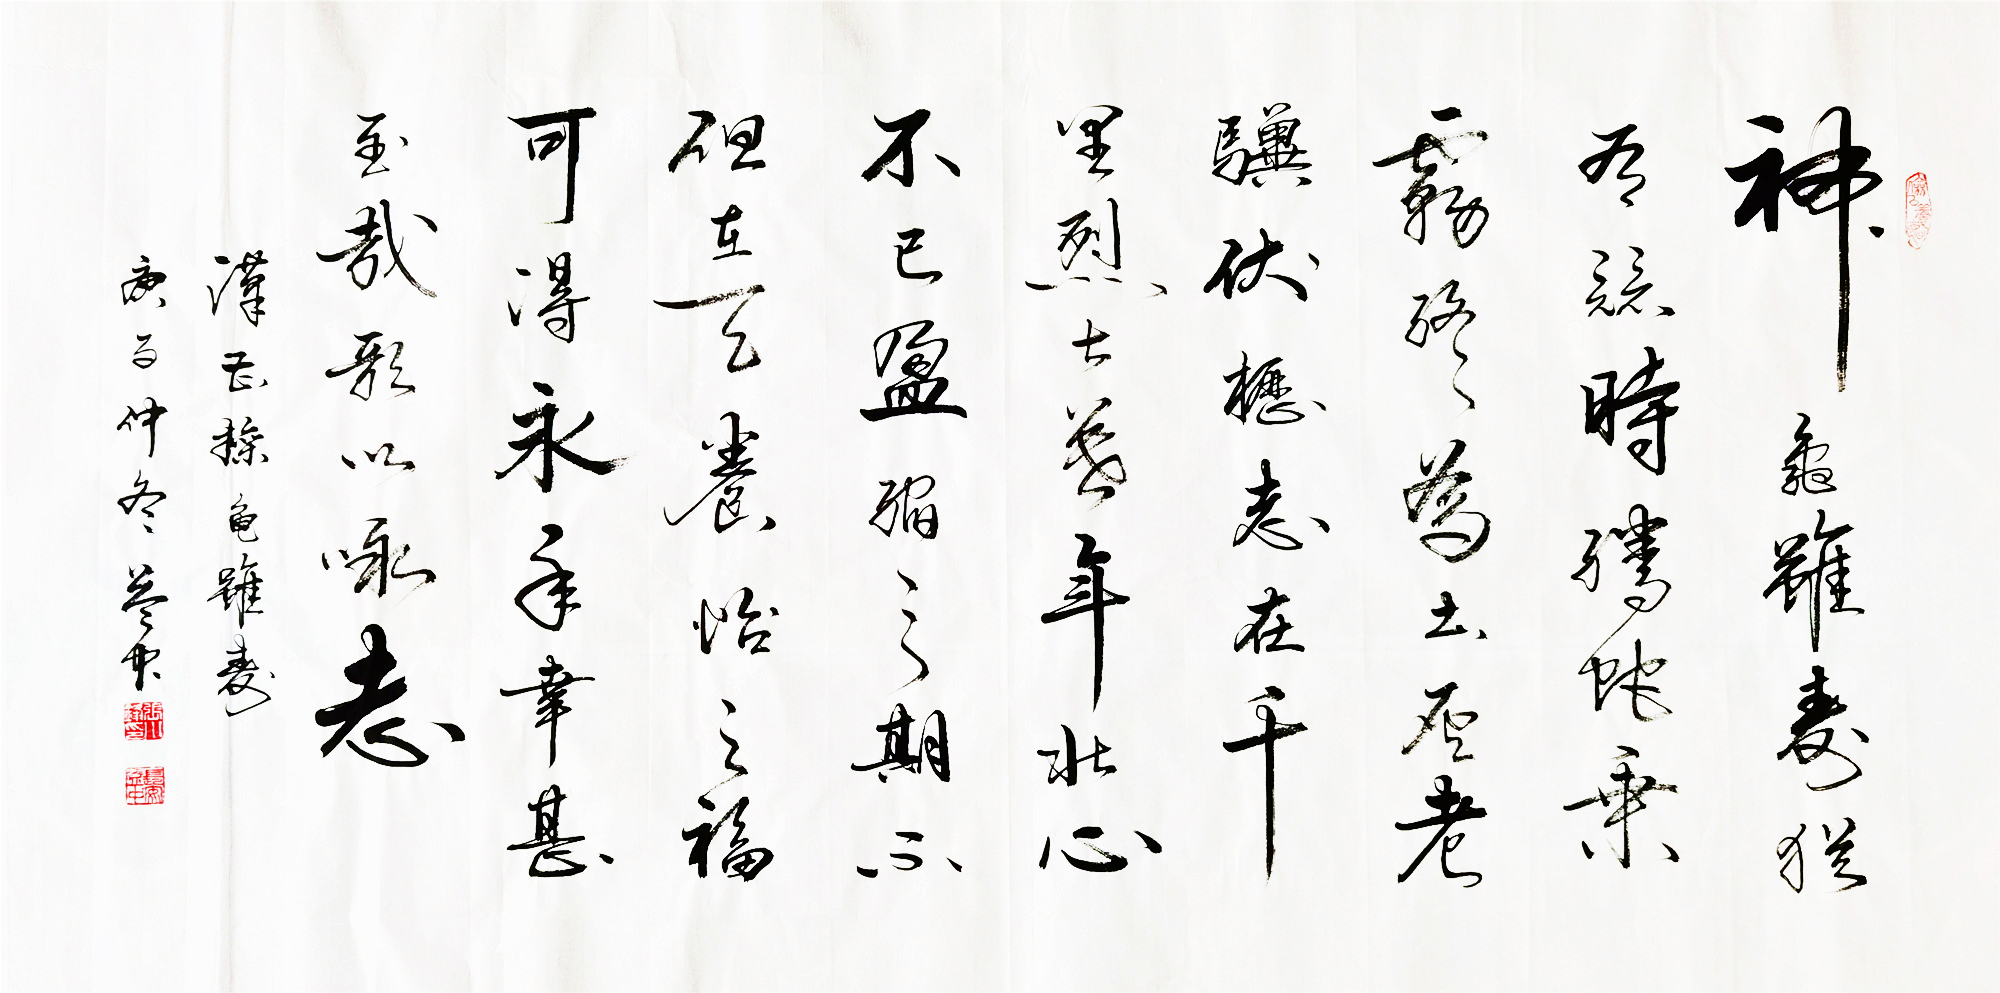 神龜雖壽猶
有竟時騰蛇乘
霧終為土灰老
驥伏櫪志在千
里烈士暮年壯心
不已盈縮之期不
但在天養怡之福
可得永年幸甚
至哉歌以詠志
漢曹操龜雖壽
庚子仲冬